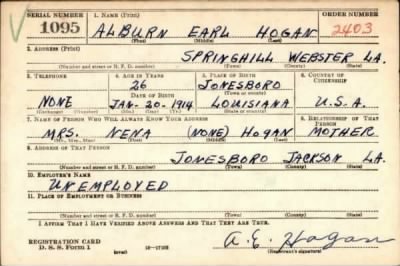 SERIAL NUMBER 1. NAME (Print) ORDER NUMBER
1095 ALBURN EARL HOGAN 2403
(First) (Middle) (Last)
2. ADDRESS (Print)
SPRINGHILL WEBSTER LA.
(Number and street or R. F. D. number) (Town) (County) (State)
3. TELEPHONE 4. AGE IN YEARS 5. PLACE OF BIRTH 6. COUNTRY OF CITIZENSHIP
26 JONESBORO
DATE OF BIRTH (Town or county)
NONE JAN-20-1914 LOUISIANA U.S.A.
(Exchange) (Number) (Mo.) (Day) (Yr.) (State or country)
7. NAME OF PERSON WHO WILL ALWAYS KNOW YOUR ADDRESS 8. RELATIONSHIP OF THAT PERSON
MRS. NENA (NONE) HOGAN MOTHER
(Mr., Mrs., Miss) (First) (Middle) (Last)
9. ADDRESS OF THAT PERSON
JONESBORO JACKSON LA.
(Number and street or R. F. D. number) (Town) (County) (State)
10. EMPLOYER'S NAME
UNEMPLOYED
11. PLACE OF EMPLOYMENT OR BUSINESS
(Number and street or R. F. D. number) (Town) (County) (State)
I AFFIRM THAT I HAVE VERIFIED ABOVE ANSWERS AND THAT THEY ARE TRUE.
REGISTRATION CARD
D. S. S. Form 1 (over) A. E. Hogan
(Registrant's signature)